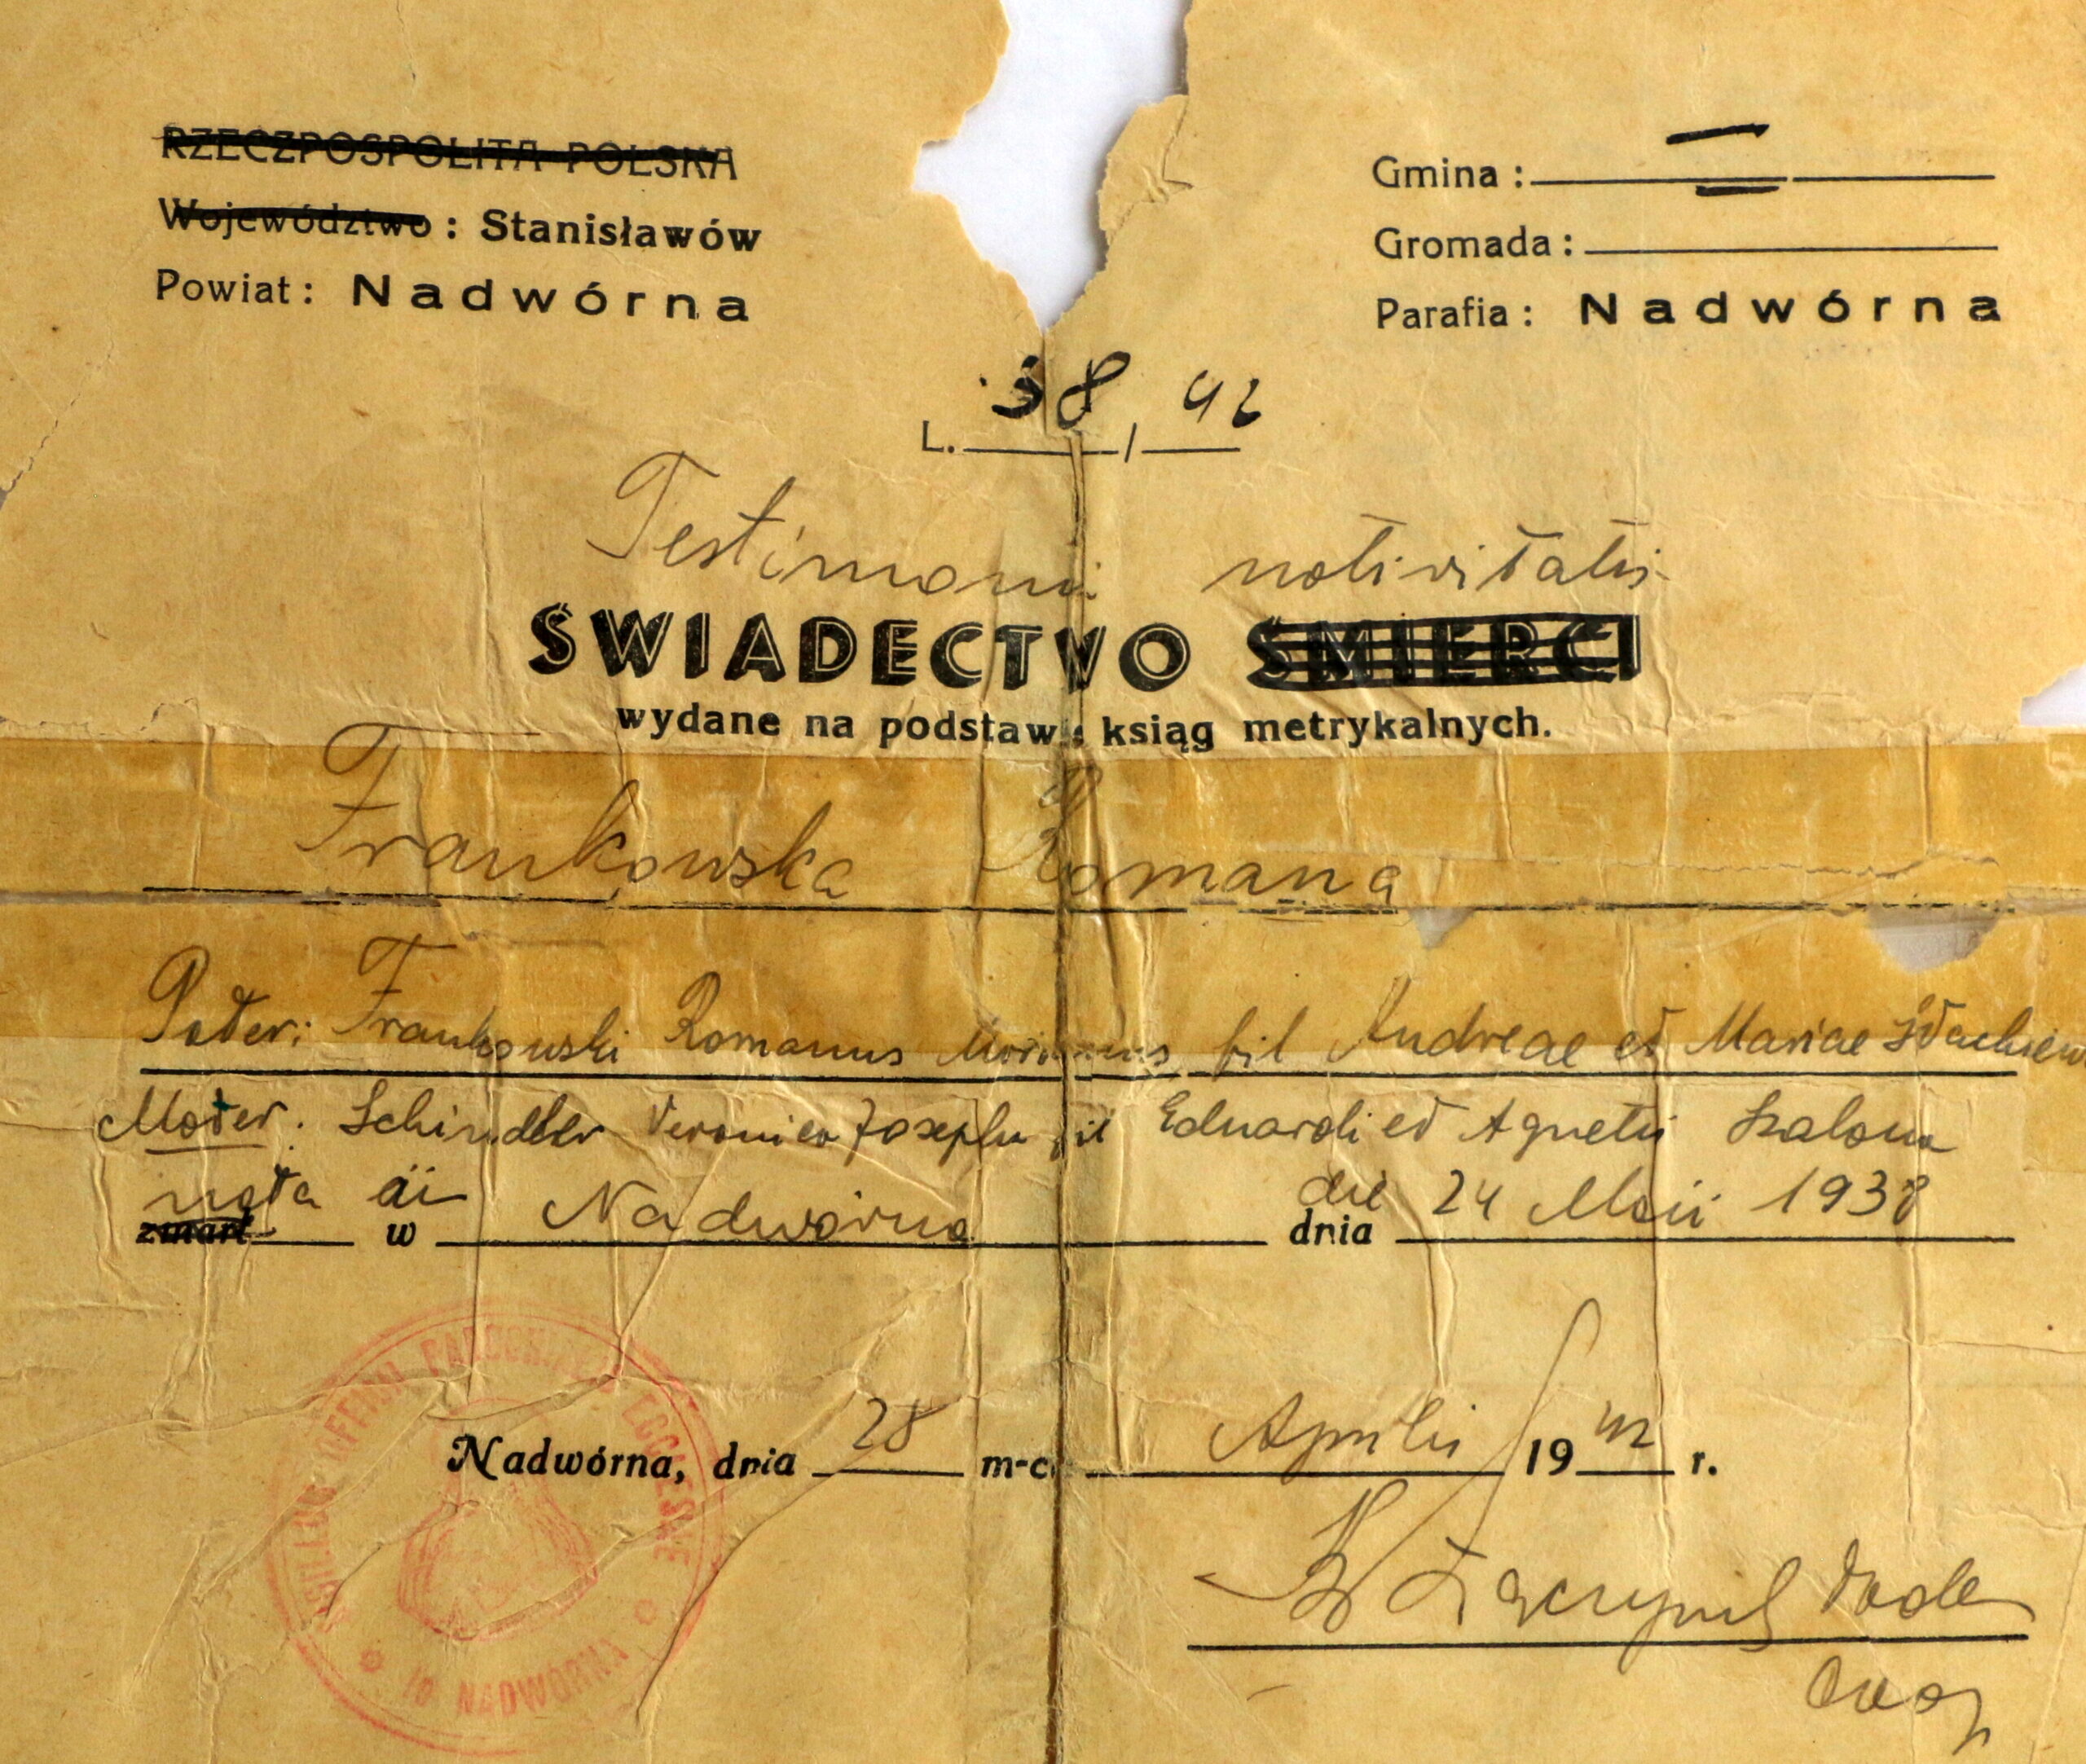 RZECZPOSPOLITA POLSKA
Województwo: Stanisławów
Powiat: Nadwórna
Gmina:
Gromada:
Parafia: Nadwórna
L. 38/42
Testimoni nativitatis
ŚWIADECTWO ŚMIERCI
wydane na podstawie ksiąg metrykalnych.
Frankowska Romana
Pater: Frankowski Romanus fil Andreae et Mariae
Mater: Schindler Veronica Josepha fil Eduardi et Agnetis
nata
zmarł w Nadwórna die dnia 24 Maii 1938
Nadwórna, dnia 28 m-ca Aprilis 1942 r.
SIGILLUM OFFICII PAROCHIALIS ECCLESIAE
NADWÓRNA